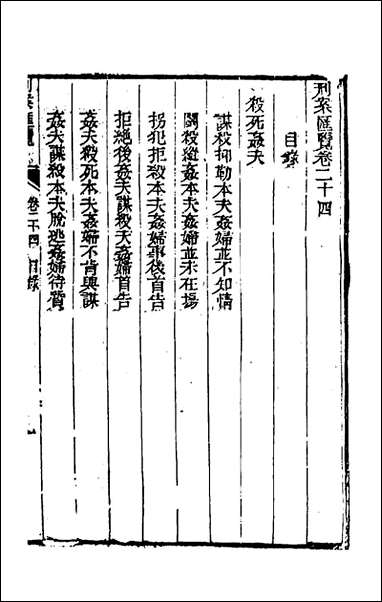 刑案匯覽卷二十四
目錄
殺死姦夫
謀殺抑勒本夫姦婦並不知情
鬬殺縱姦本夫姦婦並未在場
拐犯拒殺本夫姦婦事後首告
拒絕後姦夫謀殺夫姦婦首告
姦夫殺死本夫姦婦不肯與謀
姦夫謀殺本夫脫逃姦婦待質
刑案匯覽 卷二十四 目錄